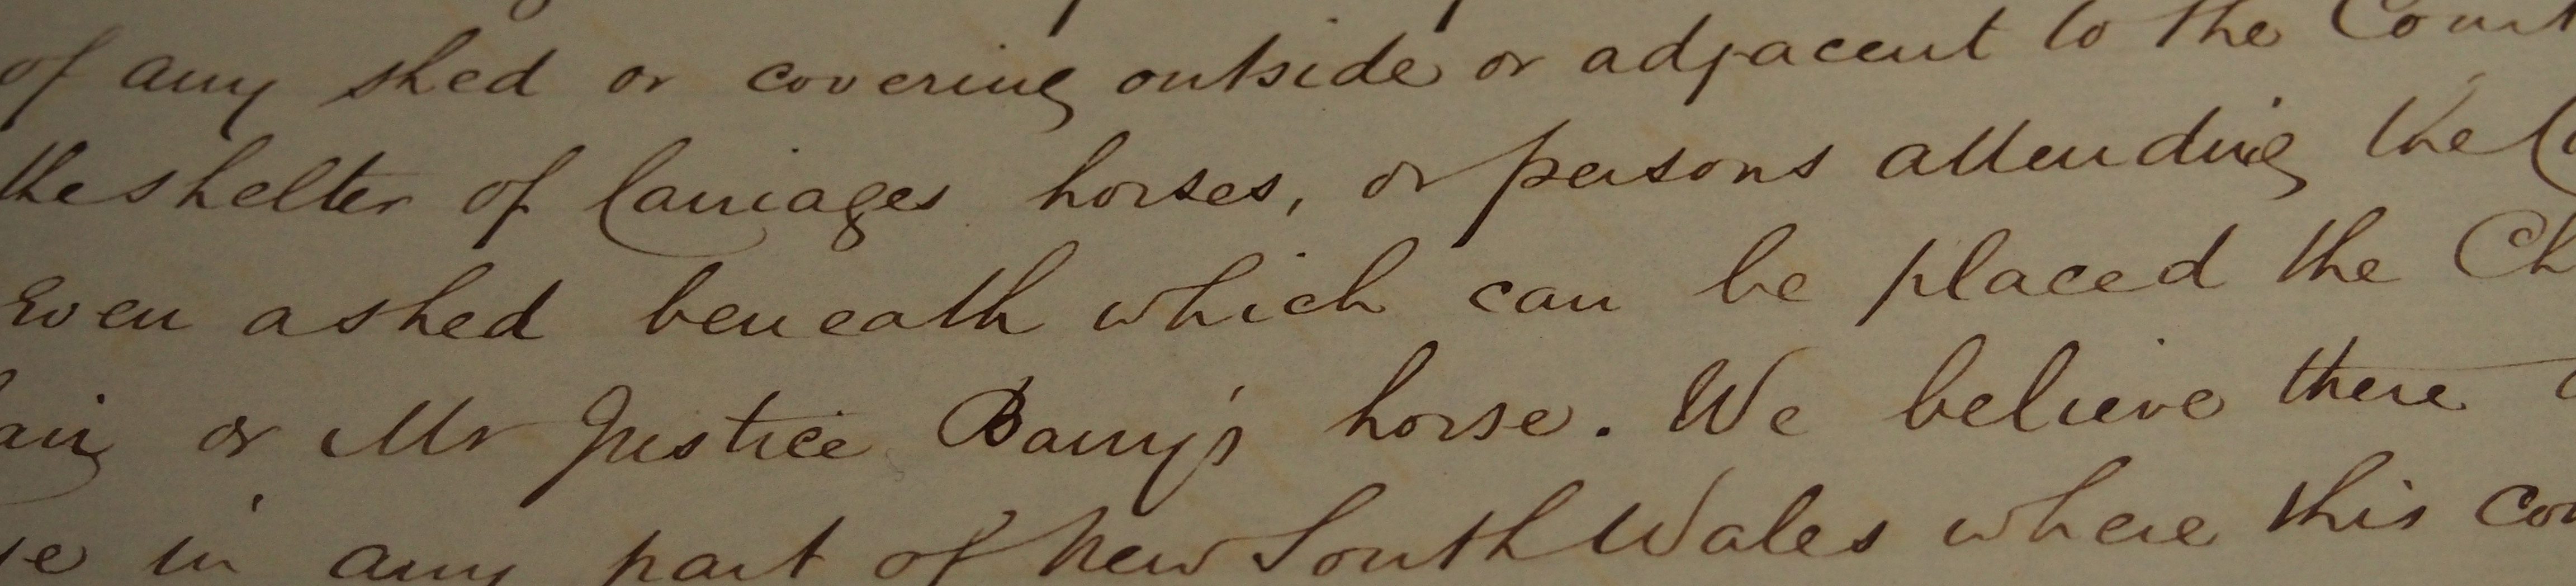 of any shed or covering outside or adjacent to the Court
the shelter of Carriages horses, or persons attending the
Even a shed beneath which can be placed the
or Mr Justice Barry's horse. We believe there
in any part of New South Wales where this